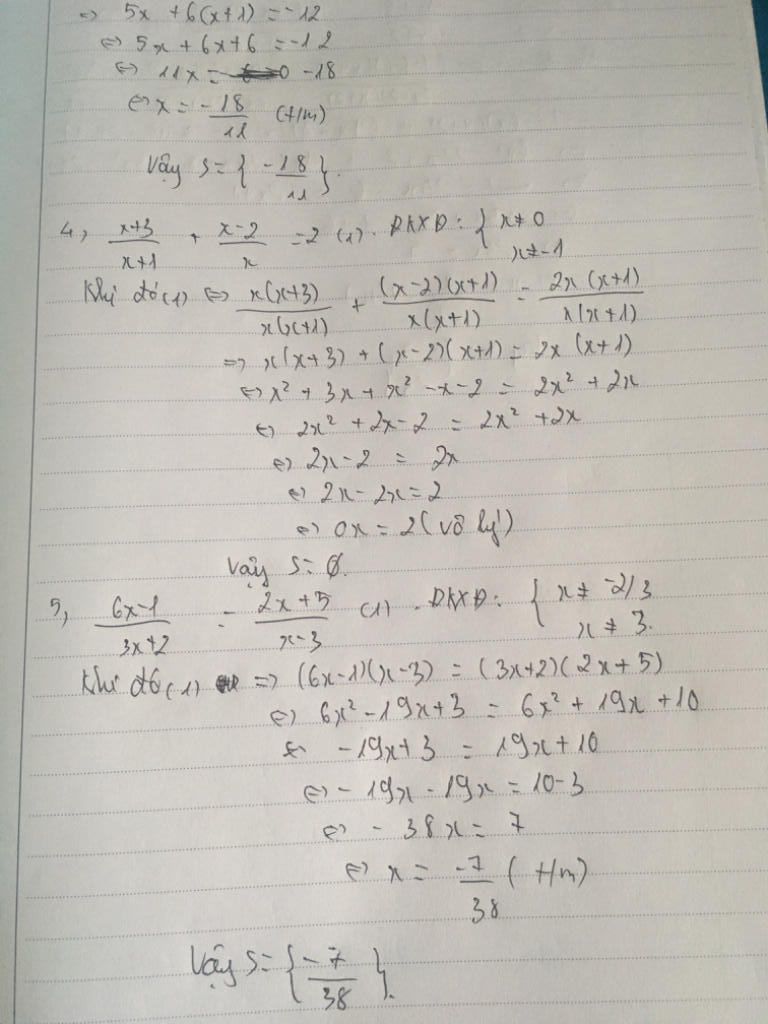 => 5x + 6(x+1) = -12
<=> 5x + 6x + 6 = -12
<=> 11x = -18
<=> x = -18/11 (t/m)
Vậy S = { -18/11 }.
4, (x+3)/(x+1) + (x-2)/x = 2 (1). ĐKXĐ: { x ≠ 0
x ≠ -1
Khi đó (1) <=> x(x+3)/x(x+1) + (x-2)(x+1)/x(x+1) = 2x(x+1)/x(x+1)
=> x(x+3) + (x-2)(x+1) = 2x(x+1)
<=> x² + 3x + x² - x - 2 = 2x² + 2x
<=> 2x² + 2x - 2 = 2x² + 2x
<=> 2x - 2 = 2x
<=> 2x - 2x = 2
<=> 0x = 2 (vô lý)
Vậy S = ∅.
5, (6x-1)/(3x+2) = (2x+5)/(x-3) (1). ĐKXĐ: { x ≠ -2/3
x ≠ 3.
Khi đó (1) => (6x-1)(x-3) = (3x+2)(2x+5)
<=> 6x² - 19x + 3 = 6x² + 19x + 10
<=> -19x + 3 = 19x + 10
<=> -19x - 19x = 10 - 3
<=> -38x = 7
<=> x = -7/38 (t/m)
Vậy S = { -7/38 }.